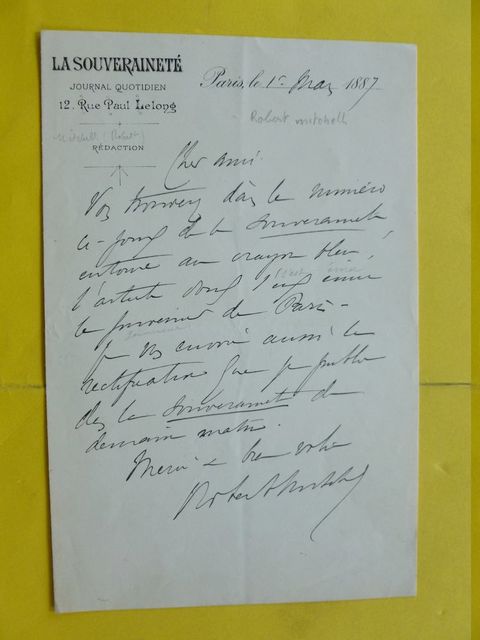 LA SOUVERAINETÉ
JOURNAL QUOTIDIEN
12, Rue Paul Lelong
RÉDACTION
Paris, le 1er Mars 1887
Robert mitchell
Mitchell (Robert)
Cher ami
Vous trouverez dans le numéro
ci-joint de la Souveraineté
entouré au crayon bleu,
l'article dont s'est émue
s'est émue
le gouverneur de Paris -
gouverneur
Je vous envoie aussi la
rectification que je publie
dans la Souveraineté de
demain matin.
Merci & bien votre
Robert Mitchell